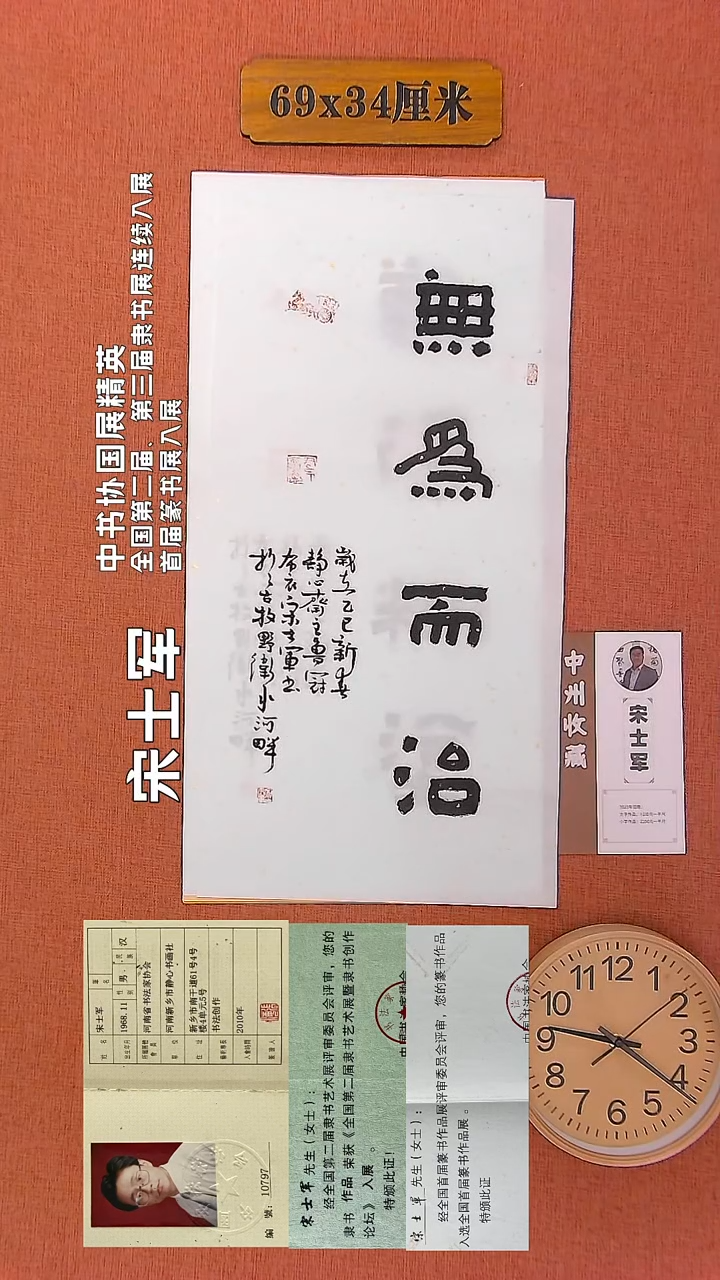 69x34厘米
中书协国展精英
全国第二届、第三届隶书展连续入展
首届篆书展入展
宋士军
無為則容
歲在乙巳新春
静心齋主豫冠
布衣宋士軍書
於古牧野衛水河畔
宋士军
姓名 宋士军 笔名
出生年月 1968.11 性别 男 民族 汉
所属团体 会员 河南省书法家协会
单位 河南新乡市静心书画社
住址 新乡市南干道61号4号楼4单元5号
书法创作
入会时间 2010年
编号：10797
宋士军 先生（女士）：
经全国第二届隶书艺术展评审委员会评审，您的
隶书 作品 荣获《全国第二届隶书艺术展暨隶书创作
论坛》 入展 。
特颁此证！
宋士军 先生（女士）：
经全国首届篆书作品展评审委员会评审，您的篆书作品
入选全国首届篆书作品展 。
特颁此证
12
1
2
4
5
6
7
8
9
10
11